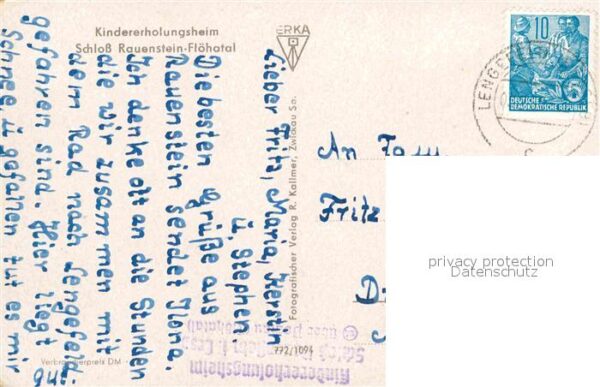 Kindererholungsheim
Schloß Rauenstein-Flöhatal
ERKA
10
DEUTSCHE
DEMOKRATISCHE REPUBLIK
LENGEF
Lieber Fritz, Maria, Kerstin
ü. Stephen
Die besten Grüße aus
Rauenstein sendet Ilona.
Ich denke oft an die Stunden
die wir zusammen mit
dem Rad nach Lengefeld
gefahren sind. Hier liegt
Schnee ü. gefallen tut es mir
gut
Fotografischer Verlag R. Kallmer, Zwickau Sa.
An Fam.
Fritz
privacy protection
Datenschutz
772/1094
Kindererholungsheim
Verbraucherpreis DM